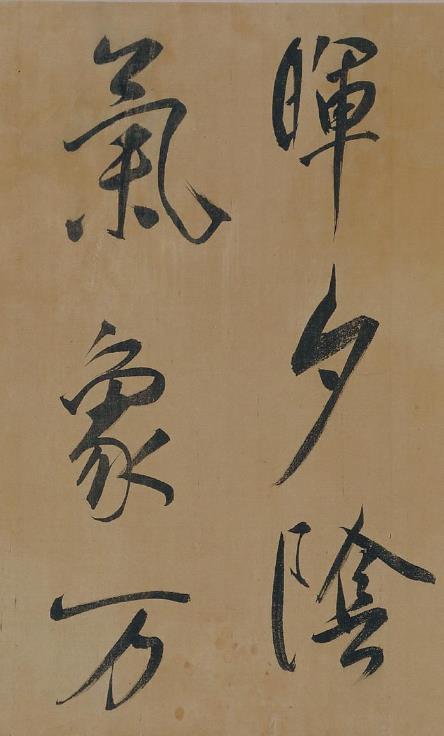 暉夕陰
氣象万